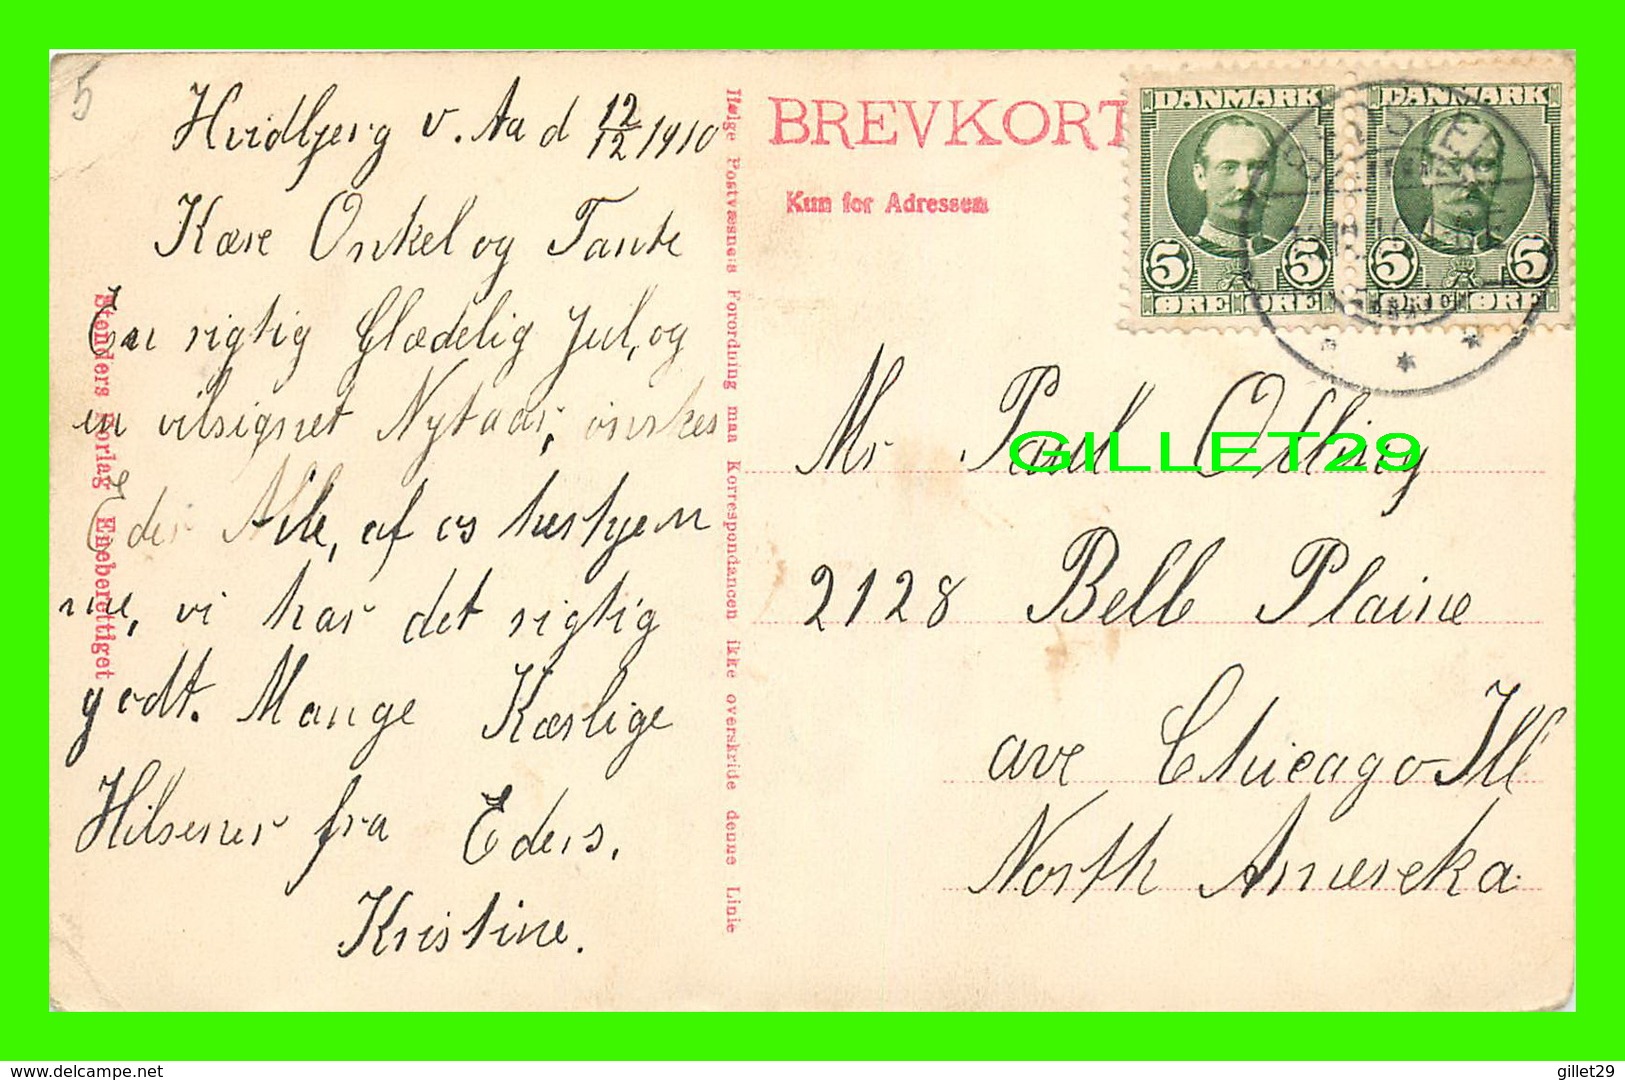 5
Hvidbjerg v. Aa d 12/12 1910
Kære Onkel og Tante
En rigtig Glædelig Jul, og
en vilsignet Nytaar, ønskes
Eder Alle, af os herhjem
me, vi har det rigtig
godt. Mange Kærlige
Hilsener fra Eders,
Kristine.
Stenders Forlag Eneberettiget
Ifølge Postvæsnets Forordning maa Korrespondancen ikke overskride denne Linie
BREVKORT
Kun for Adressen
DANMARK
5 5
ØRE ØRE
DANMARK
5 5
ØRE ØRE
Mr Paul
GILLET29
2128 Belle Plaine
ave Chicago Ill
North Amereka.
©yright delcampe.net
gillet29